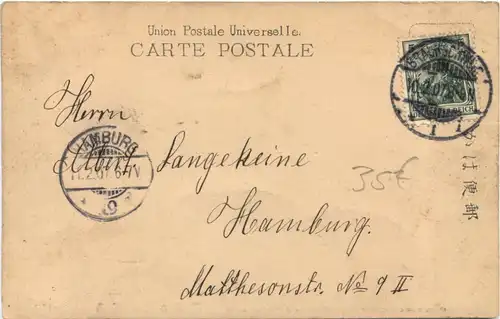 Union Postale Universelle.
CARTE POSTALE
5
Herrn
Albert Langekeine
Hamburg.
Matthesonstr. No 9 II
HAMBURG
11.2.07. 6-7N
9
35€
きかは便郵